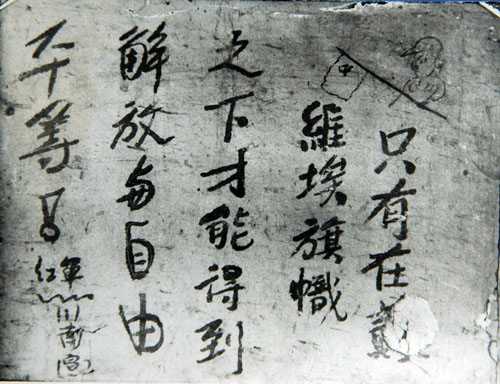 只有在蘇
維埃旗幟
之下才能得到
解放与自由
等
紅軍
川南